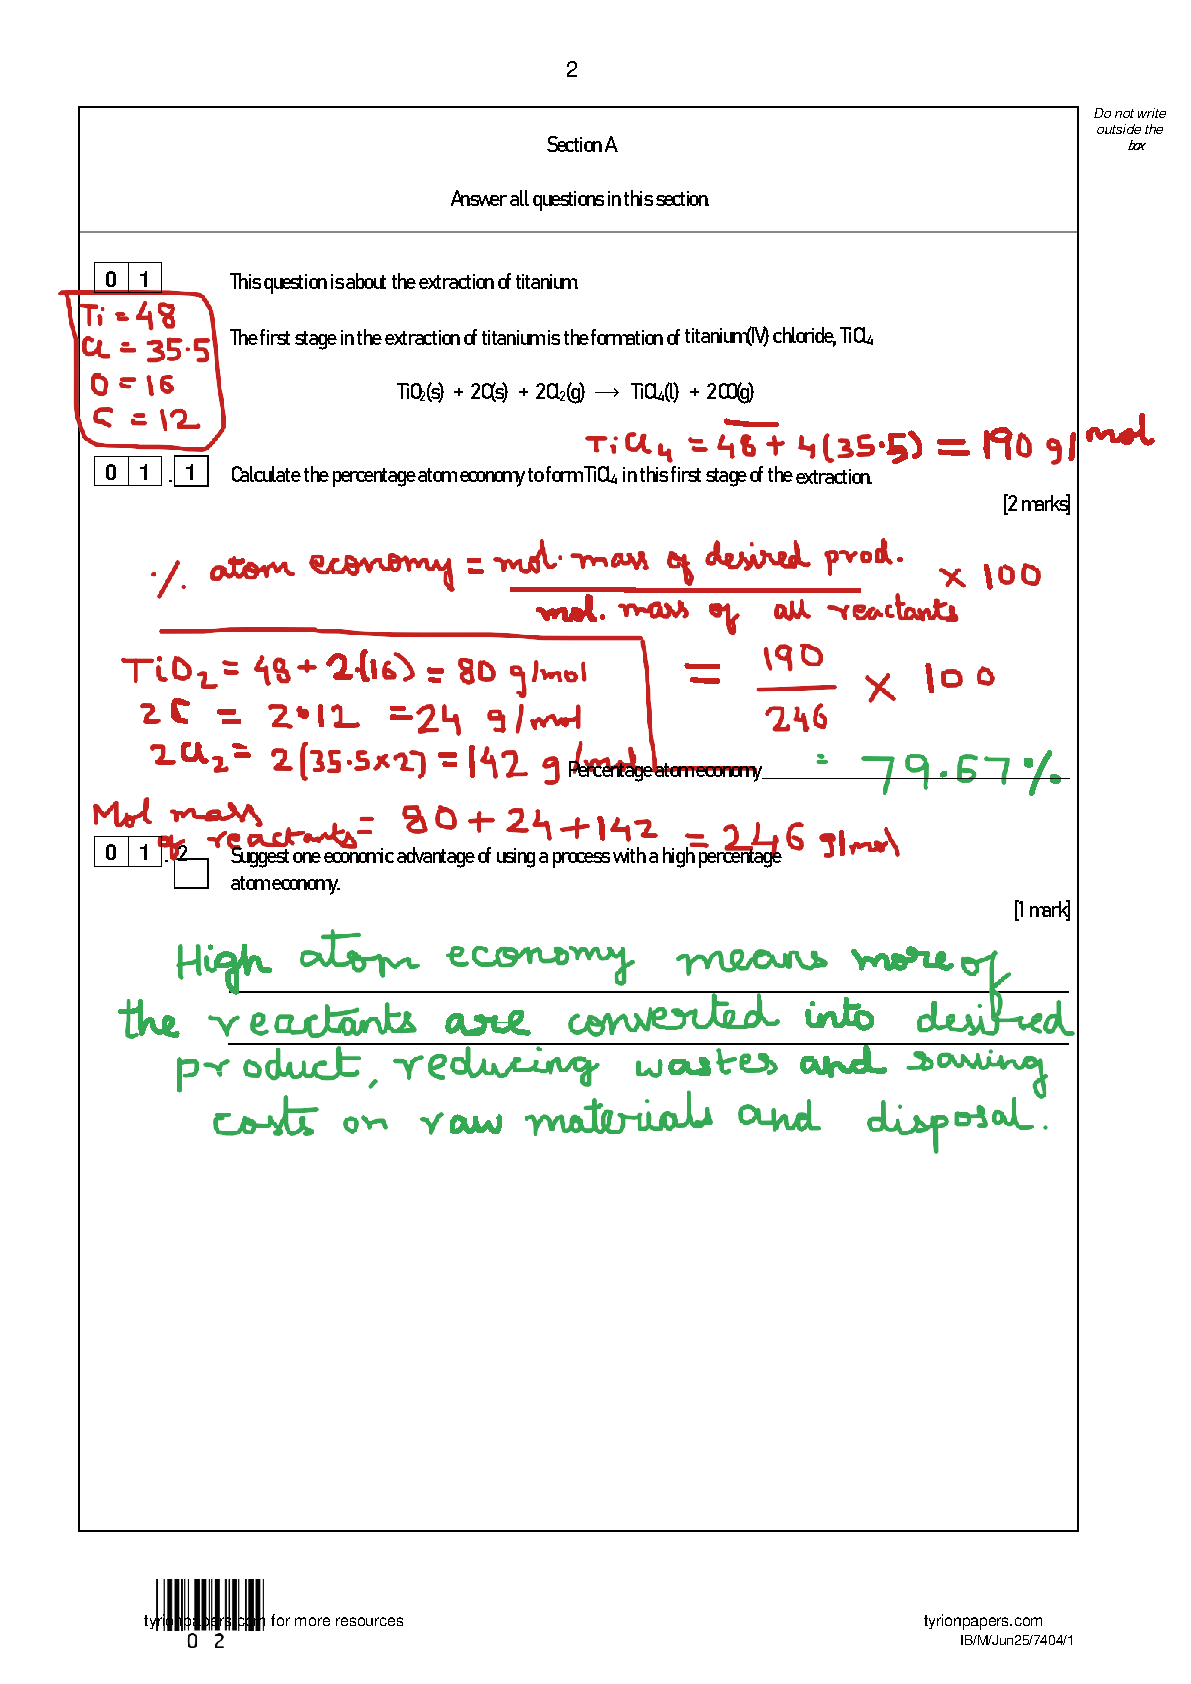 2
Do not write
outside the
box
Section A
Answer all questions in this section.
0 1 This question is about the extraction of titanium.
Ti = 48
Cl = 35.5
O = 16
C = 12
The first stage in the extraction of titanium is the formation of titanium(IV) chloride, TiCl₄
TiO₂(s) + 2C(s) + 2Cl₂(g) → TiCl₄(l) + 2CO(g)
TiCl₄ = 48 + 4(35.5) = 190 g/mol
0 1 . 1 Calculate the percentage atom economy to form TiCl₄ in this first stage of the extraction.
[2 marks]
% atom economy = mol. mass of desired prod. × 100
mol. mass of all reactants
TiO₂ = 48 + 2(16) = 80 g/mol
= 190 × 100
246
2C = 2•12 = 24 g/mol
2Cl₂ = 2(35.5×2) = 142 g/mol
Percentage atom economy = 79.67%
Mol mass
of reactants = 80 + 24 + 142 = 246 g/mol
0 1 . 2 Suggest one economic advantage of using a process with a high percentage
atom economy.
[1 mark]
High atom economy means more of
the reactants are converted into desired
product, reducing wastes and saving
costs on raw materials and disposal.
tyrionpapers.com for more resources
tyrionpapers.com
0 2
IB/M/Jun25/7404/1